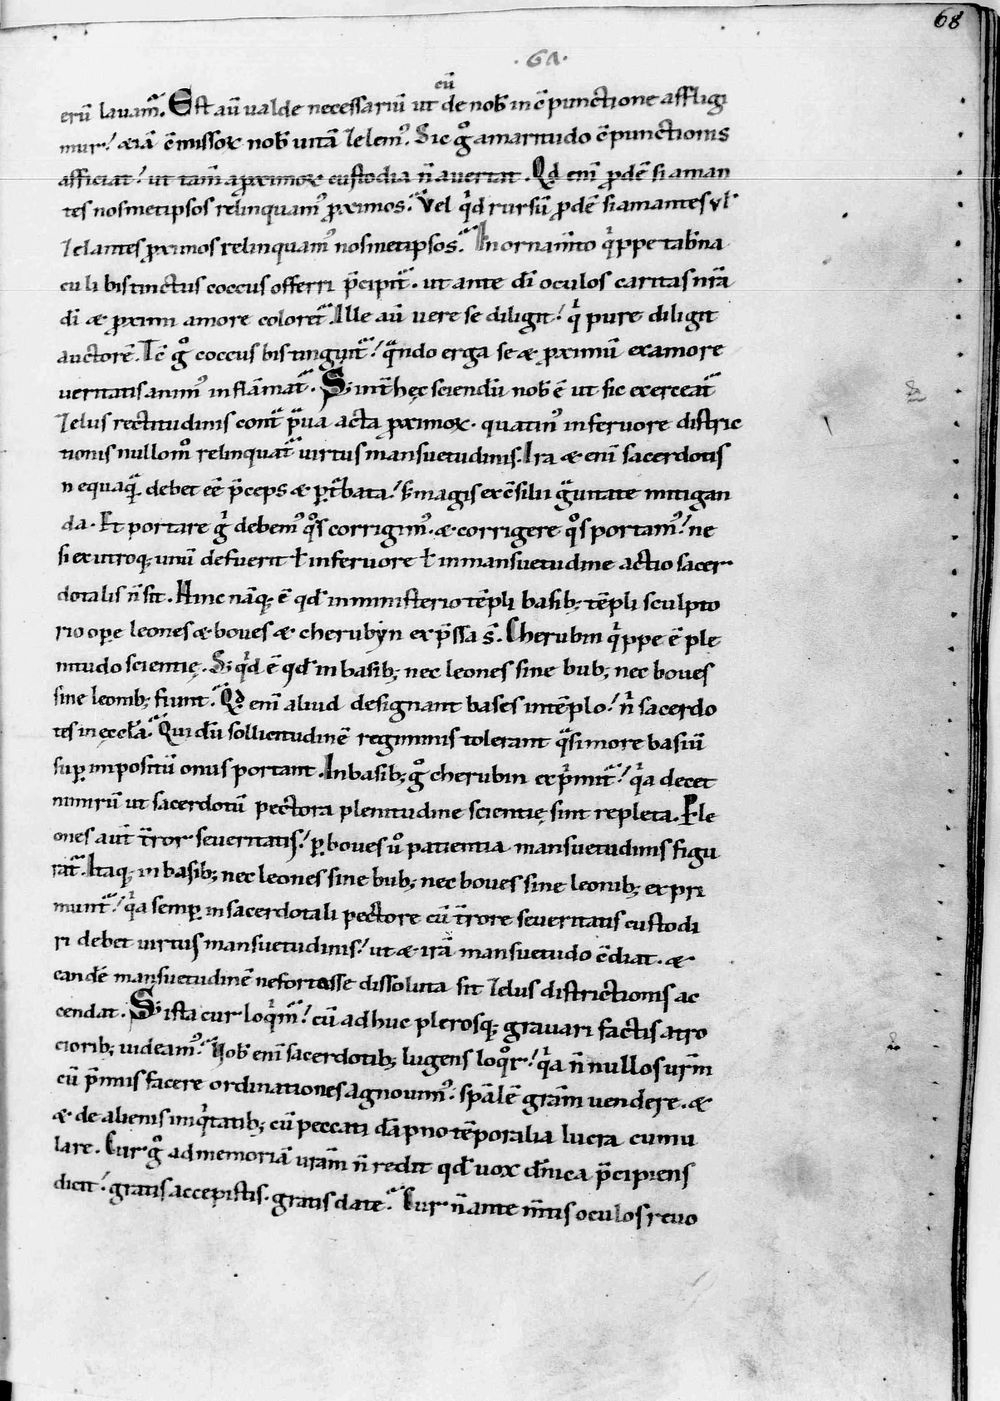 68
·61·
cū
erū lauam̄. Est aū ualde necessariū ut de nob̄ in ꝯpunctione affligi
mur! & iā ꝯmissoꝝ nob̄ uitā zelem᷒. Sic g̊ amaritudo ꝯpunctionis
afficiat! ut tam̄ a ꝓximoꝝ custodia n̄ auertat. Qd enī ꝓdē si aman
tes nosmetipsos relinquam᷒ ꝓximos. Vel qͥd rursū ꝓdē si amantes vl̓
zelantes ꝓximos relinquam᷒ nosmetipsos. In ornam̄to qͥppe tab̄na
culi bis tinctus coccus offerri p̄cipit᷑. ut ante dī oculos caritas nrā
dī & ꝓximi amore coloret᷑. Ille aū uere se diligit! qͥ pure diligit
auctorē. Tc̄ g̊ coccus bis tinguit᷑! qᵃndo erga se & ꝓximū ex amore
ueritatis anim᷒ inflāmat᷑. S; int̄ hęc sciendū nob̄ ē ut sic exerceat᷑
zelus rectitudinis cont̄ p̄ua acta ꝓximoꝝ. quatin᷒ in feruore distric
tionis nullom̊ relinquat᷑ uirtus mansuetudinis. Ira & enī sacerdotis
nequaqᵃ debet eē p̄ceps & ꝑt̄bata! s; magis ex ꝯsilii gᵃuitate mitigan
da. Et portare gͥ debem᷒ q̊s corrigim᷒. & corrigere q̊s portam᷒! ne
si ex utroq; unū defuerit ł in feruore ł in mansuetudine actio sacer
dotalis n̄ sit. Hinc nāq; ē qd̄ in ministerio tēpli basib; tēpli sculpto
rio oꝑe leones & boues & cherubyn exp̄ssa s̄. Cherubin qͥppe ē ple
nitudo scientię. S; qͥd ē qd̄ in basib; nec leones sine bub; nec boues
sine leonib; fiunt. Qd enī aliud designant bases in tēplo! n̄ sacerdo
tes in ęccl̄a. Qui dū sollicitudinē regiminis tolerant qᵃsi more basiū
suꝑ impositū onus portant. In basib; g̊ cherubin expͥmit᷑! qͥa decet
nimirū ut sacerdotū pectora plenitudine scientię sint repleta. P le
ones aut̄ t̄ror seueritatis! ꝑ boues ů patientia mansuetudinis figu
rat᷑. Itaq; in basib; nec leones sine bub; nec boues sine leonib; expri
munt᷑! qͥa semꝑ in sacerdotali pectore cū t̄rore seueritatis custodi
ri debet uirtus mansuetudinis! ut & irā mansuetudo ꝯdiat. &
eandē mansuetudinē ne fortasse dissoluta sit zelus districtionis ac
cendat. S; ista cur loqͥm᷑! cū adhuc plerosq; grauari factis atro
ciorib; uideam᷒. Nob̄ enī sacerdotib; lugens loq̊r! qͥa n̄ nullos ur̄m
cū p̄miis facere ordinationes agnouim᷒. sp̄alē gr̄am uendere. &
& de alienis iniqͥtatib; cū peccati dāpno tēporalia lucra cumu
lare. Cur g̊ ad memoriā uram̄ n̄ redit qd̄ uox dn̄ica p̄cipiens
dicit! gratis accepistis. gratis date. Cur n̄ ante m̄tis oculos reuo